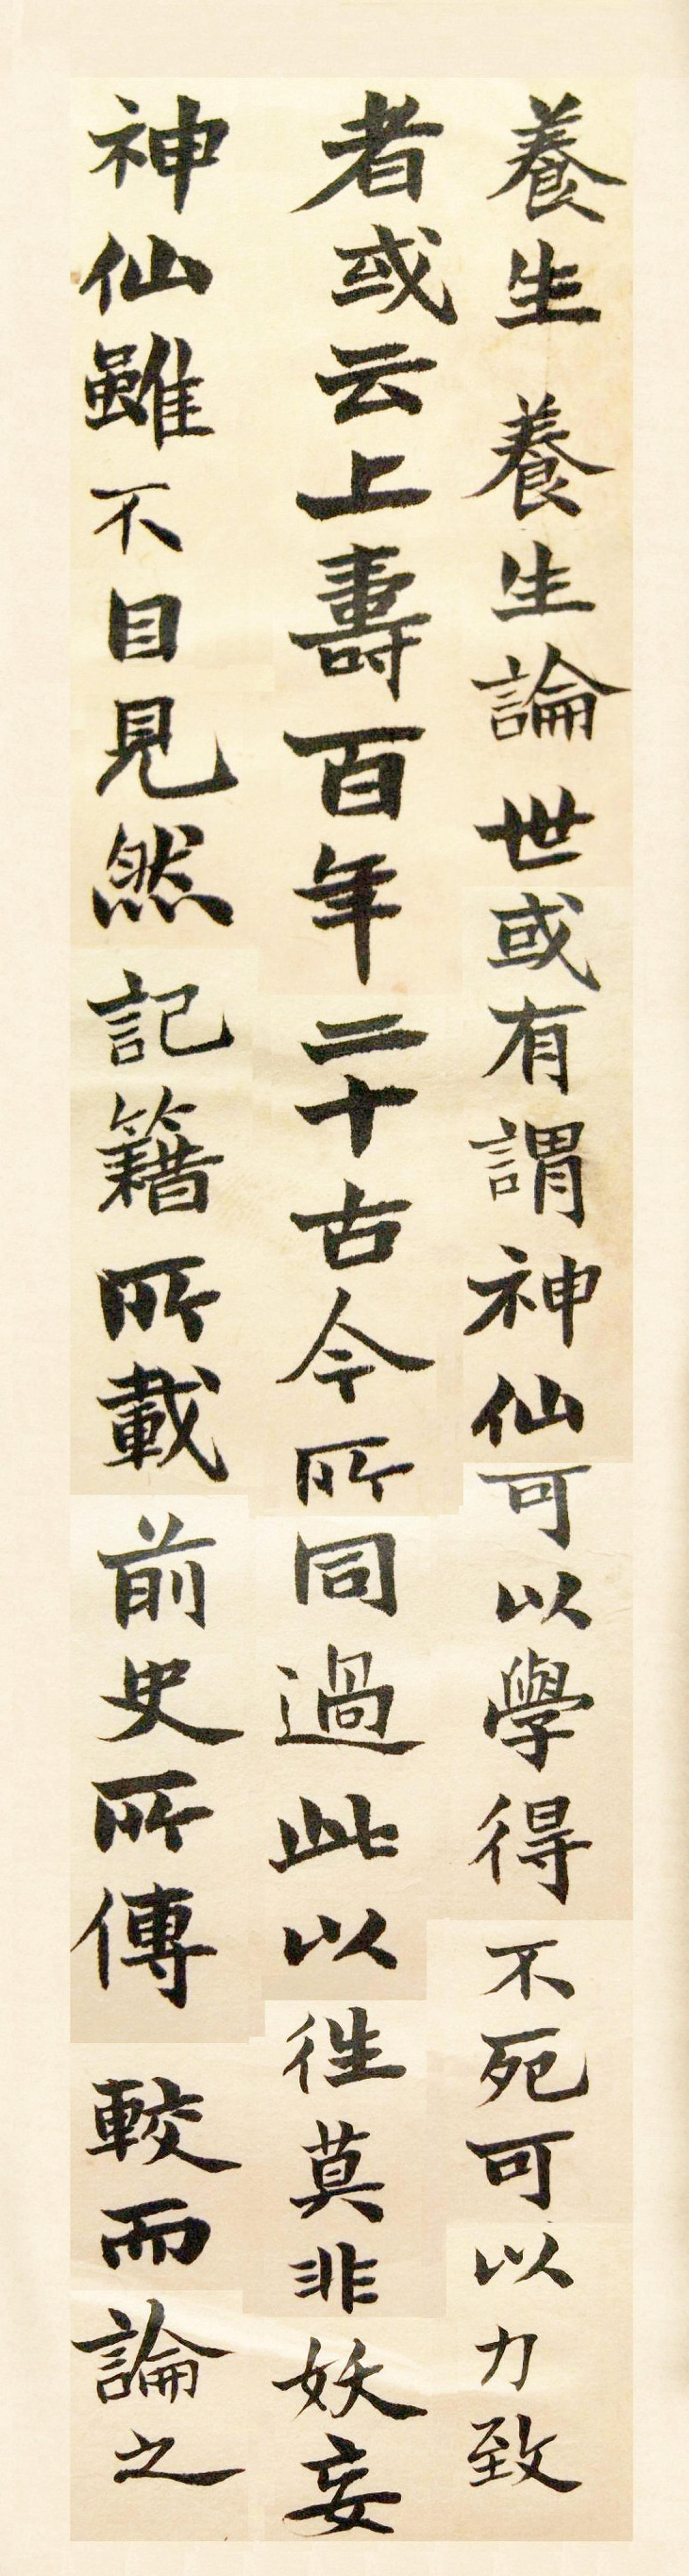 養生 養生論 世或有謂神仙可以學得不死可以力致
者或云上壽百年二十古今所同過此以徃莫非妖妄
神仙雖不目見然記籍所載前史所傳較而論之